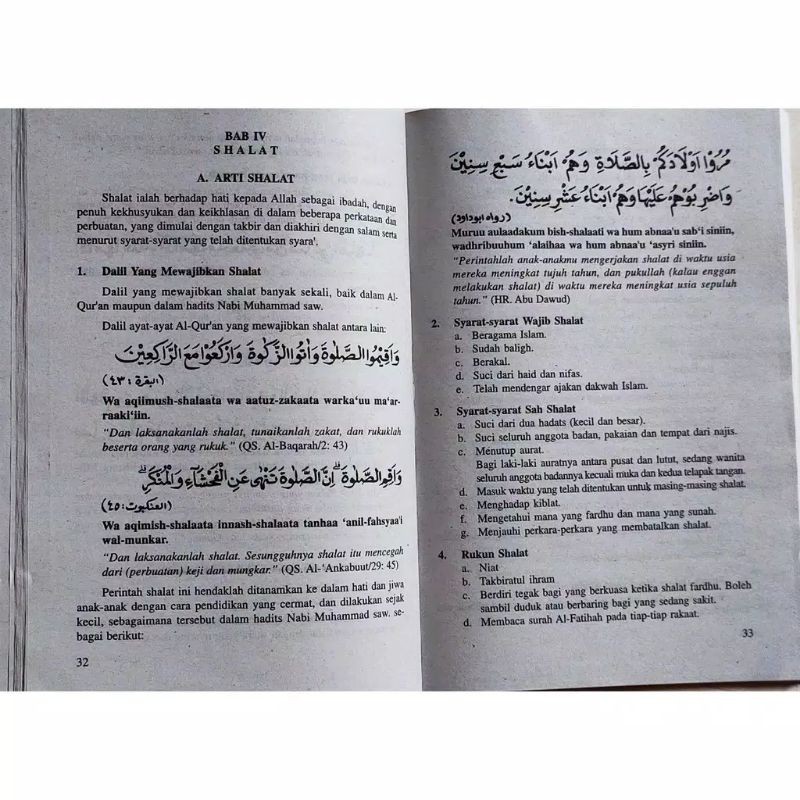 BAB IV
SHALAT
A. ARTI SHALAT
Shalat ialah berhadap hati kepada Allah sebagai ibadah, dengan
penuh kekhusyukan dan keikhlasan di dalam beberapa perkataan dan
perbuatan, yang dimulai dengan takbir dan diakhiri dengan salam serta
menurut syarat-syarat yang telah ditentukan syara'.
1. Dalil Yang Mewajibkan Shalat
Dalil yang mewajibkan shalat banyak sekali, baik dalam Al-
Qur'an maupun dalam hadits Nabi Muhammad saw.
Dalil ayat-ayat Al-Qur'an yang mewajibkan shalat antara lain:
وَاَقِيْمُوا الصَّلٰوةَ وَاٰتُوا الزَّكٰوةَ وَارْكَعُوْا مَعَ الرَّاكِعِيْنَ
(البقرة : ٤٣)
Wa aqiimush-shalaata wa aatuz-zakaata warka'uu ma'ar-
raaki'iin.
"Dan laksanakanlah shalat, tunaikanlah zakat, dan rukuklah
beserta orang yang rukuk." (QS. Al-Baqarah/2: 43)
وَاَقِمِ الصَّلٰوةَ ۗ اِنَّ الصَّلٰوةَ تَنْهٰى عَنِ الْفَحْشَاۤءِ وَالْمُنْكَرِ ۗ
(العنكبوت : ٤٥)
Wa aqimish-shalaata innash-shalaata tanhaa 'anil-fahsyaa'i
wal-munkar.
"Dan laksanakanlah shalat. Sesungguhnya shalat itu mencegah
dari (perbuatan) keji dan mungkar." (QS. Al-'Ankabuut/29: 45)
Perintah shalat ini hendaklah ditanamkan ke dalam hati dan jiwa
anak-anak dengan cara pendidikan yang cermat, dan dilakukan sejak
kecil, sebagaimana tersebut dalam hadits Nabi Muhammad saw. se-
bagai berikut:
32
مُرُوْا اَوْلَادَكُمْ بِالصَّلَاةِ وَهُمْ اَبْنَاءُ سَبْعِ سِنِيْنَ
وَاضْرِبُوْهُمْ عَلَيْهَا وَهُمْ اَبْنَاءُ عَشْرِ سِنِيْنَ.
(رواه ابوداود)
Muruu aulaadakum bish-shalaati wa hum abnaa'u sab'i siniin,
wadhribuuhum 'alaihaa wa hum abnaa'u 'asyri siniin.
"Perintahlah anak-anakmu mengerjakan shalat di waktu usia
mereka meningkat tujuh tahun, dan pukullah (kalau enggan
melakukan shalat) di waktu mereka meningkat usia sepuluh
tahun." (HR. Abu Dawud)
2. Syarat-syarat Wajib Shalat
a. Beragama Islam.
b. Sudah baligh.
c. Berakal.
d. Suci dari haid dan nifas.
e. Telah mendengar ajakan dakwah Islam.
3. Syarat-syarat Sah Shalat
a. Suci dari dua hadats (kecil dan besar).
b. Suci seluruh anggota badan, pakaian dan tempat dari najis.
c. Menutup aurat.
Bagi laki-laki auratnya antara pusat dan lutut, sedang wanita
seluruh anggota badannya kecuali muka dan kedua telapak tangan.
d. Masuk waktu yang telah ditentukan untuk masing-masing shalat.
e. Menghadap kiblat.
f. Mengetahui mana yang fardhu dan mana yang sunah.
g. Menjauhi perkara-perkara yang membatalkan shalat.
4. Rukun Shalat
a. Niat
b. Takbiratul ihram
c. Berdiri tegak bagi yang berkuasa ketika shalat fardhu. Boleh
sambil duduk atau berbaring bagi yang sedang sakit.
d. Membaca surah Al-Fatihah pada tiap-tiap rakaat.
33